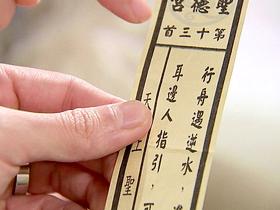 聖德宮
第十三首
行舟遇逆水，
耳邊人指引，可
天上聖